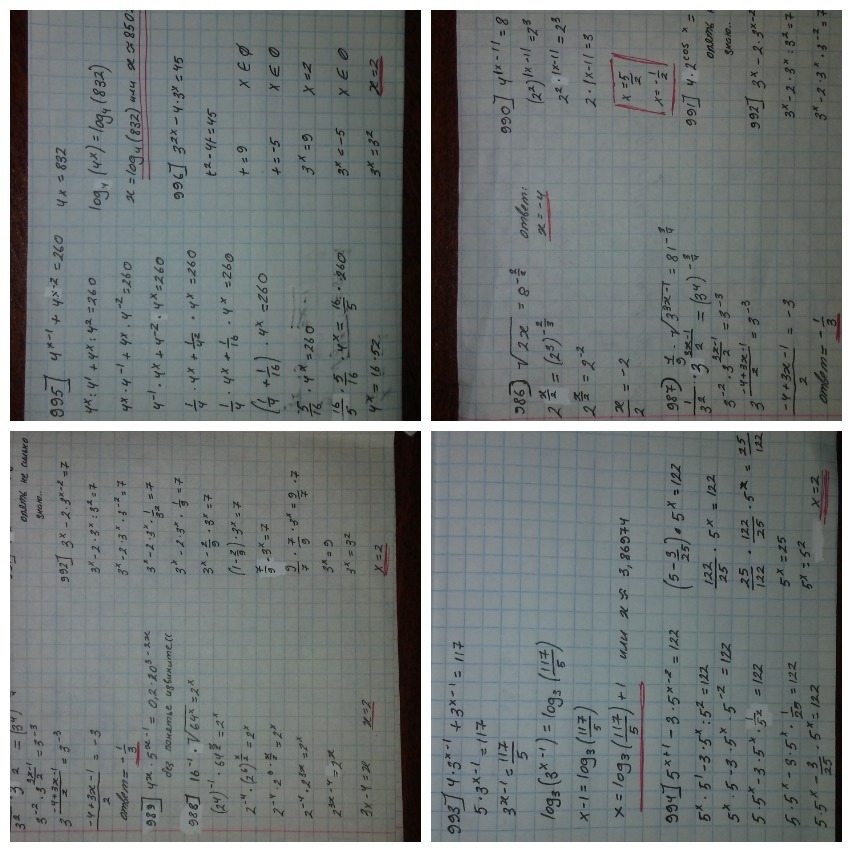 995] 4^(x-1) + 4^(x-2) = 260
4^x : 4^1 + 4^x : 4^2 = 260
4^x · 4^-1 + 4^x · 4^-2 = 260
4^-1 · 4^x + 4^-2 · 4^x = 260
1/4 · 4^x + 1/4^2 · 4^x = 260
1/4 · 4^x + 1/16 · 4^x = 260
(1/4 + 1/16) · 4^x = 260
5/16 · 4^x = 260
16/5 · 5/16 · 4^x = 16/5 · 260
4^x = 16·52
4x = 832
log4(4x) = log4(832)
x = log4(832) или x ≈ 850.
996] 3^2x - 4·3^x = 45
t^2 - 4t = 45
t = 9 x ∈ ∅
t = -5 x ∈ 0
3^x = 9 x = 2
3^x = -5 x ∈ 0
3^x = 3^2 x = 2
986) √2x = 8^(-2/3)
2^(x/2) = (2^3)^(-2/3)
2^(x/2) = 2^-2
x/2 = -2
ответ:
x = -4
987) 1/9 · √3^(3x-1) = 81^(-3/4)
1/3^2 · 3^((3x-1)/2) = (34)^(-3/4)
3^-2 · 3^((3x-1)/2) = 3^-3
3^((-4+3x-1)/2) = 3^-3
(-4+3x-1)/2 = -3
ответ = -1/3
990] 4^|x-1| = 8
(2^2)^|x-1| = 2^3
2^2·|x-1| = 2^3
2·|x-1| = 3
x = 5/2
x = -1/2
991] 4·2^cos x =
опять
знаю..
992] 3^x - 2·3^x-2 = 7
3^x - 2·3^x : 3^2 = 7
3^x - 2·3^x · 3^-2 = 7
3^-2 · 3^((3x-1)/2) = 3^-3
3^((-4+3x-1)/2) = 3^-3
(-4+3x-1)/2 = -3
ответ = -1/3
989] 4x · 5^(x-1) = 0,2·20^(3-2x)
без понятье извините((
988] 16^-1 · √64^x = 2^x
(24)^-1 · 64^(x/2) = 2^x
2^-4 · (2^6)^(x/2) = 2^x
2^-4 · 2^(6·x/2) = 2^x
2^-4 · 2^3x = 2^x
2^(3x-4) = 2^x
3x-4 = x x=2
опять не сильно
знаю..
992] 3^x - 2·3^(x-2) = 7
3^x - 2·3^x : 3^2 = 7
3^x - 2·3^x · 3^-2 = 7
3^x - 2·3^x · 1/3^2 = 7
3^x - 2·3^x · 1/9 = 7
3^x - 2/9 · 3^x = 7
(1 - 2/9) · 3^x = 7
7/9 · 3^x = 7
9/7 · 7/9 · 3^x = 9/7 · 7
3^x = 9
3^x = 3^2
x = 2
993] 4·3^(x-1) + 3^(x-1) = 117
5·3^(x-1) = 117
3^(x-1) = 117/5
log3(3^x-1) = log3(117/5)
x-1 = log3(117/5)
x = log3(117/5) + 1 или x ≈ 3,86974
994] 5^(x+1) - 3·5^(x-2) = 122
5^x · 5^1 - 3·5^x : 5^2 = 122
5^x · 5 - 3·5^x · 5^-2 = 122
5·5^x - 3·5^x · 1/5^2 = 122
5·5^x - 3·5^x · 1/25 = 122
5·5^x - 3/25 · 5^x = 122
(5 - 3/25) · 5^x = 122
122/25 · 5^x = 122
25/122 · 122/25 · 5^x = 25/122
5^x = 25
5^x = 5^2
x = 2